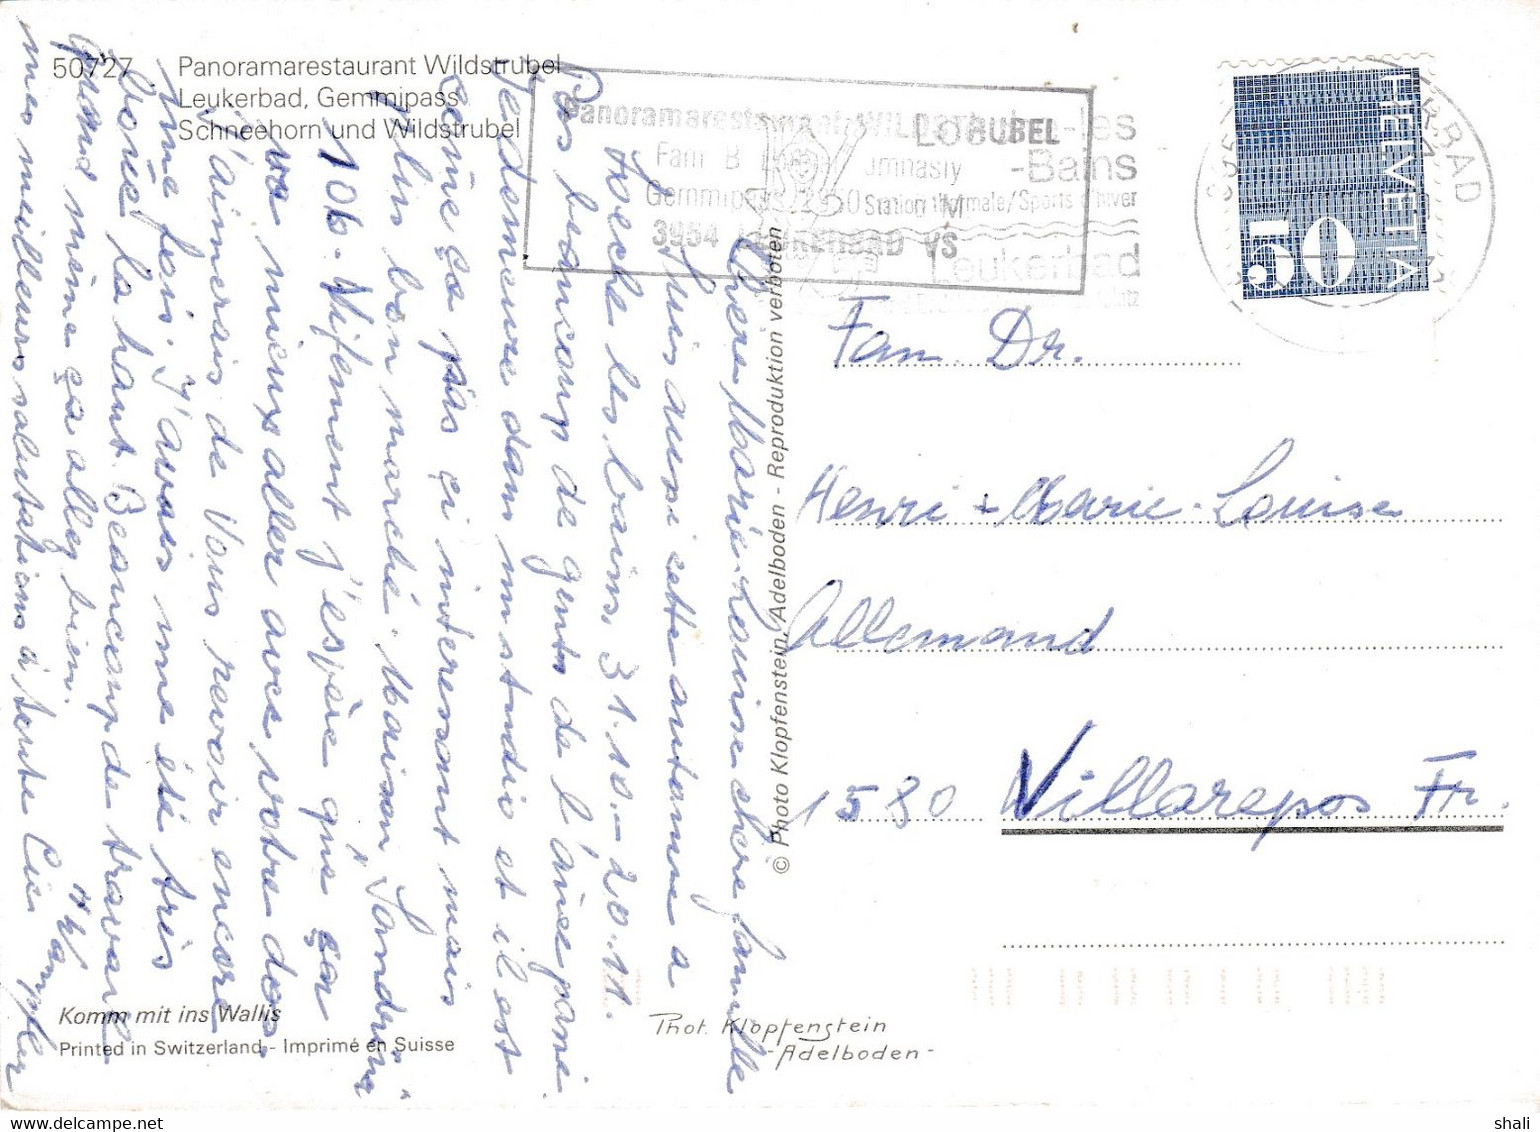 50727 Panoramarestaurant Wildstrubel
Leukerbad, Gemmipass
Schneehorn und Wildstrubel
Panoramarestaurant WILDSTRUBEL
Gemmipass 2350 m ü M
3954 LEUKERBAD VS
Loèche-les
-Bains
Station thermale/Sports d'hiver
Leukerbad
HELVETIA
50
Chère Marie-Louise chère famille
Suis aussi cette automne a
Loèche les bains, 31.10.–20.11.
Pas beaucoup de gents de l'âie pami
Je demeure dans un studio et il est
comme ça pas çi interessant mais
plus bon marché. Maison "Sandrina"
106. Vifement j'espère que ça
va mieux aller avec votre dos,
J'aimerais de Vous revoir encore
une fois. J'avais une été très
là haut. Beaucoup de travail
quand même ça allez bien.
mes meilleurs salutations à toute
Fam Dr.
Henri + Marie-Louise
Allemand
1580 Villarepos Fr.
© Photo Klopfenstein, Adelboden - Reproduktion verboten
Komm mit ins Wallis
Printed in Switzerland - Imprimé en Suisse
Phot. Klopfenstein
-Adelboden-
shali
delcampe.net